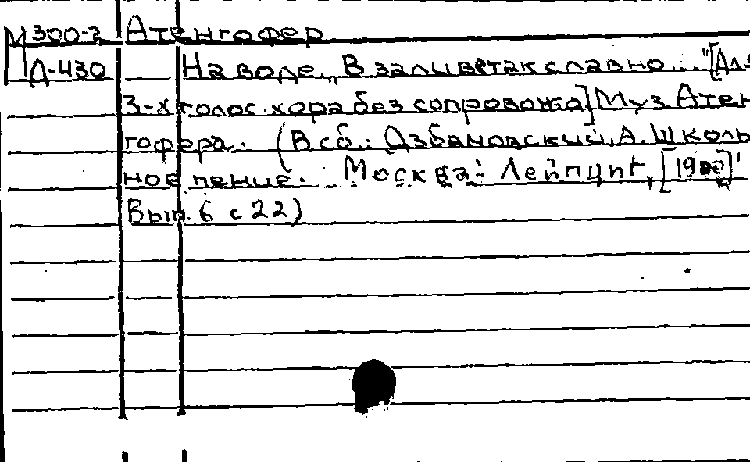 М300-2 Атенгофер
Д-430 На воде. „В заливе так славно..." [Дл.
3-х голос. хора без сопровожд] Муз Атен
гофера. (В сб.: Дзбановский, А. Школь
ное пение. Москва: Лейпциг,
Вып. 6 с 22)